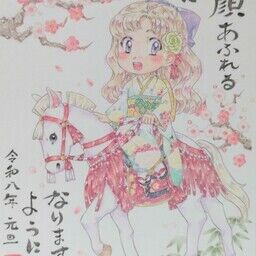 顔あふれる
になります
ように
令和八年 元旦